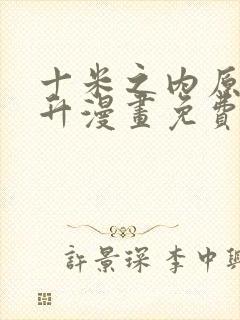 十米之内原
开漫畫免費
許景琛 李中興